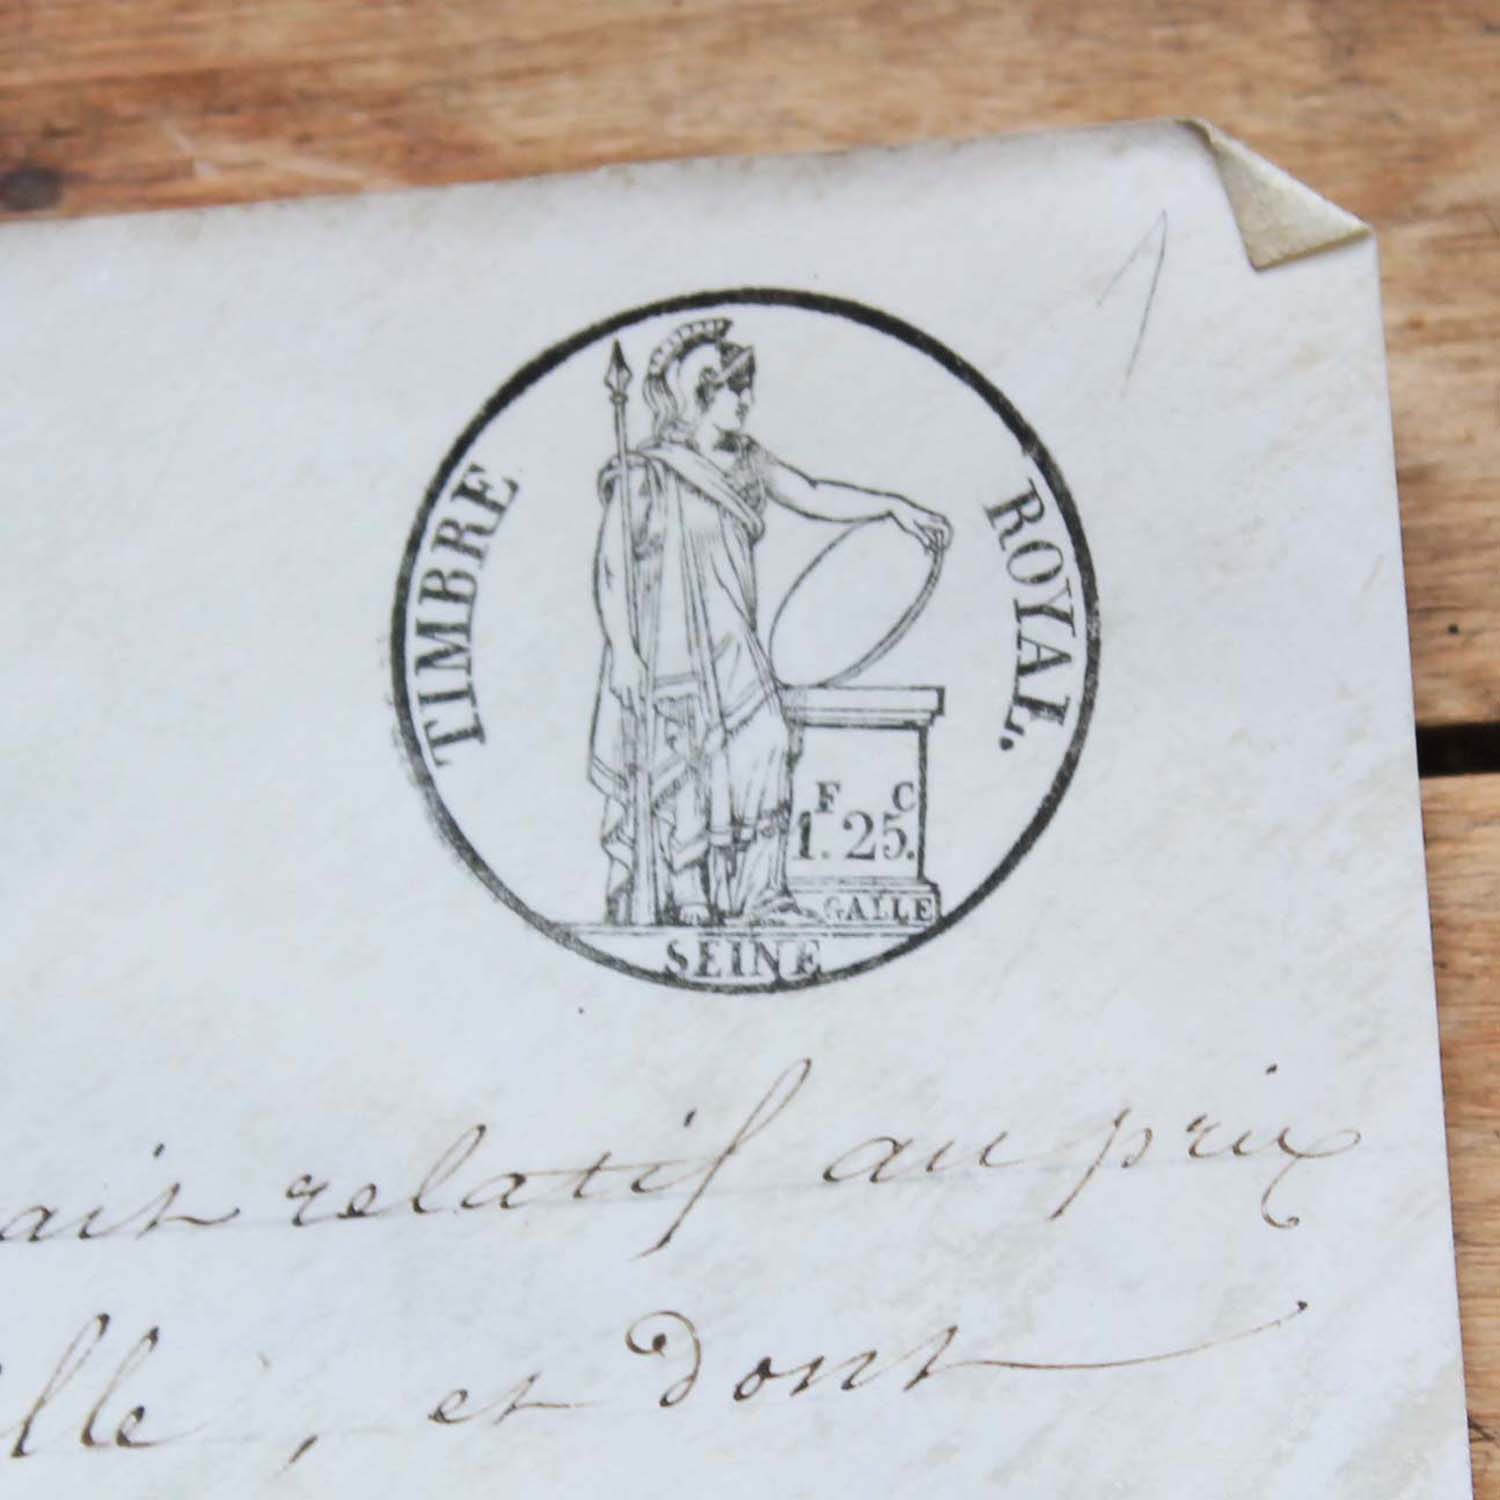 1
TIMBRE ROYAL.
F C
1.25.
GALLE
SEINE
ait relatif au prix
elle, et dont